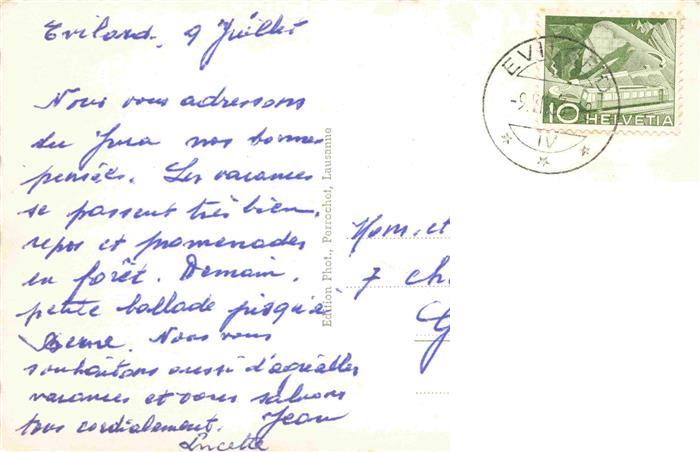 Evilard, 9 Juillet
Nous vous adressons
du Jura nos bonnes
pensées. Les vacances
se passent très bien,
repos et promenades
en forêt. Demain,
petite ballade jusqu'à
Berne. Nous vous
souhaitons aussi d'agréables
vacances et vous saluons
tous cordialement. Jean
Lucette
Edition Phot., Perrochet, Lausanne
EVILARD
-9.
IV
10 HELVETIA
et
7 ch